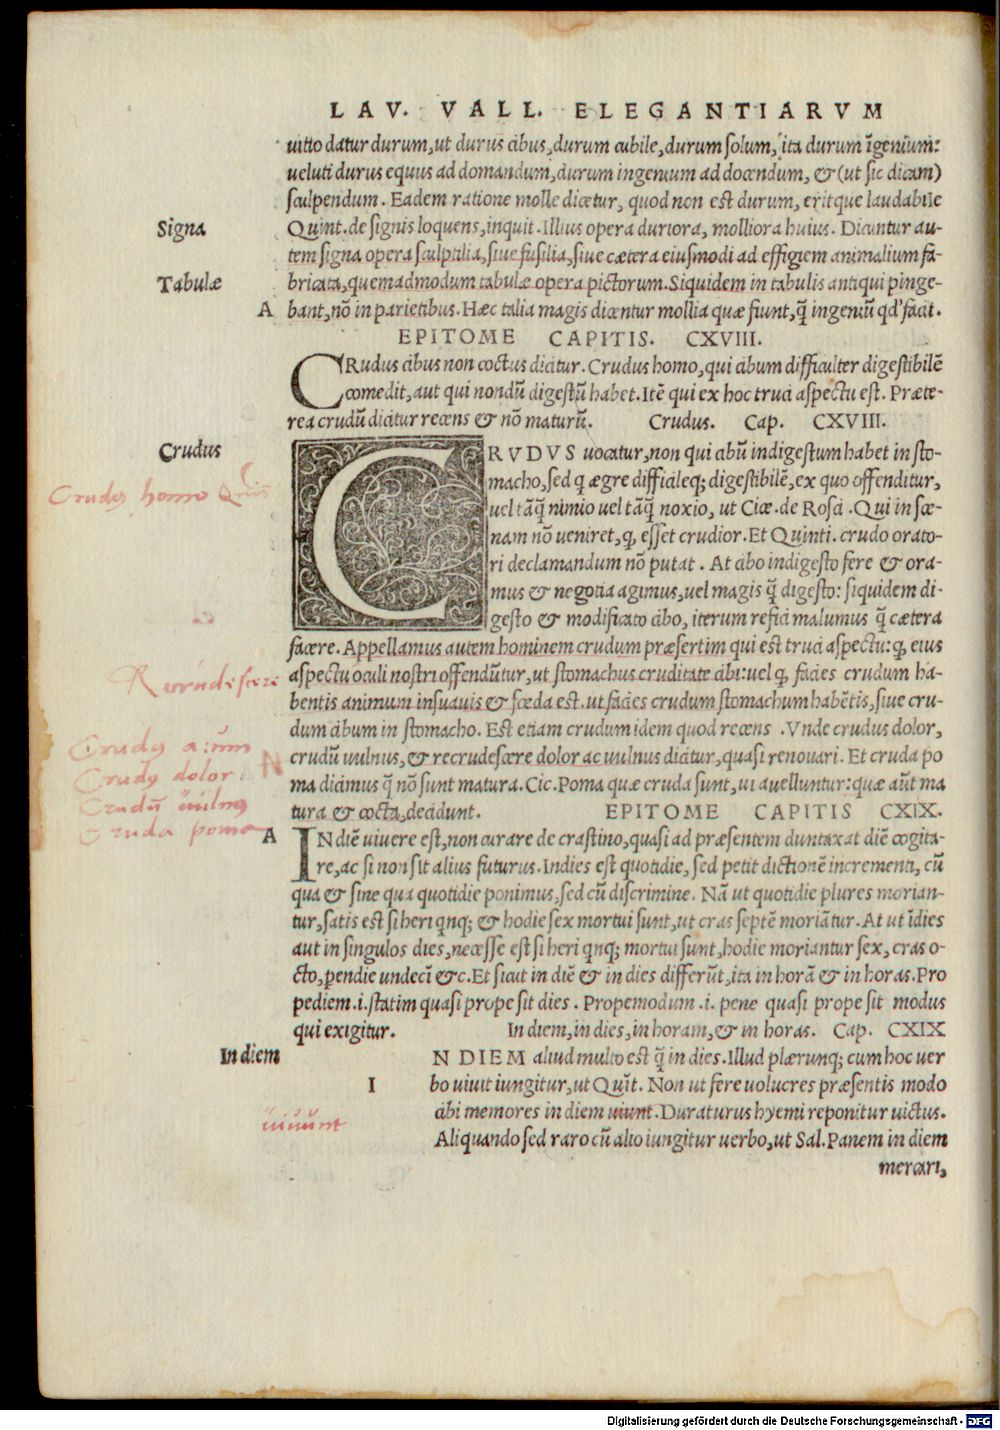 LAV. VALL. ELEGANTIARVM
uitio datur durum, ut durus cibus, durum cubile, durum solum, ita durum īgenium:
ueluti durus equus ad domandum, durum ingenium ad docendum, & (ut sic dicam)
sculpendum. Eadem ratione molle dicetur, quod non est durum, eritque laudabile
Signa
Quint. de signis loquens, inquit. Illius opera duriora, molliora huius. Dicuntur au-
tem signa opera sculptilia, siue fusilia, siue cætera eiusmodi ad effigiem animalium fa-
Tabulæ
bricata, quemadmodum tabulæ opera pictorum. Siquidem in tabulis antiqui pinge-
A
bant, nō in parietibus. Hæc talia magis dicentur mollia quæ fiunt, q̄ ingeniū qd' facit.
EPITOME CAPITIS. CXVIII.
CRudus cibus non coctus dicitur. Crudus homo, qui cibum difficulter digestibilē
comedit, aut qui nondū digestū habet. Itē qui ex hoc truci aspectu est. Præte-
rea crudū dicitur recens & nō maturū. Crudus. Cap. CXVIII.
Crudus
CRVDVS uocatur, non qui cibū indigestum habet in sto-
macho, sed q ægre difficileq; digestibilē, ex quo offenditur,
Crudus homo Quis
uel tāq̄ nimio uel tāq̄ noxio, ut Cice. de Rosci. Qui in sce-
nam nō ueniret, q, esset crudior. Et Quinti. crudo orato-
ri declamandum nō putat. At cibo indigesto fere & ora-
mus & negotia agimus, uel magis q̄ digesto: siquidem di-
gesto & modificato cibo, iterum refici malumus q̄ cætera
facere. Appellamus autem hominem crudum præsertim qui est truci aspectu: q, eius
aspectu oculi nostri offendūtur, ut stomachus cruditate cibi: uel q, facies crudum ha-
bentis animum insuauis & fœda est. ut facies crudum stomachum habētis, siue cru-
dum cibum in stomacho. Est etiam crudum idem quod recens. Vnde crudus dolor,
Crudus dolor
Crudū uulnus
Cruda poma
crudū uulnus, & recrudescere dolor ac uulnus dicitur, quasi renouari. Et cruda po
ma dicimus q̄ nō sunt matura. Cic. Poma quæ cruda sunt, ui auelluntur: quæ aūt ma
tura & cocta, decidunt. EPITOME CAPITIS CXIX.
A
IN diē uiuere est, non curare de crastino, quasi ad præsentem duntaxat diē cogita-
re, ac si non sit alius futurus. Indies est quotidie, sed petit dictionē incrementi, cū
qua & sine qua quotidie ponimus, sed cū discrimine. Nā ut quotidie plures morian-
tur, satis est si heri qnq; & hodie sex mortui sunt, ut cras septē moriātur. At ut īdies
aut in singulos dies, necesse est si heri qnq; mortui sunt, hodie moriantur sex, cras o-
cto, pendie undecī &c. Et sicut in diē & in dies differūt, ita in horā & in horas. Pro
pediem .i. statim quasi prope sit dies. Propemodum .i. pene quasi prope sit modus
qui exigitur. In diem, in dies, in horam, & in horas. Cap. CXIX
In diem
IN DIEM aliud multo est q̄ in dies. Illud plærunq; cum hoc uer
bo uiuit iungitur, ut Quīt. Non ut fere uolucres præsentis modo
cibi memores in diem uiunt. Duraturus hyemi reponitur uictus.
uiuunt
Aliquando sed raro cū alio iungitur uerbo, ut Sal. Panem in diem
mercari,
Digitalisierung gefördert durch die Deutsche Forschungsgemeinschaft - DFG